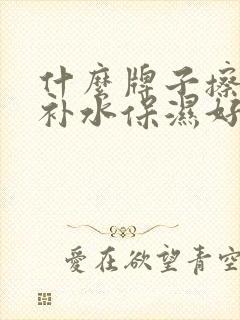 什麼牌子擦
补水保濕好
愛在欲望青空